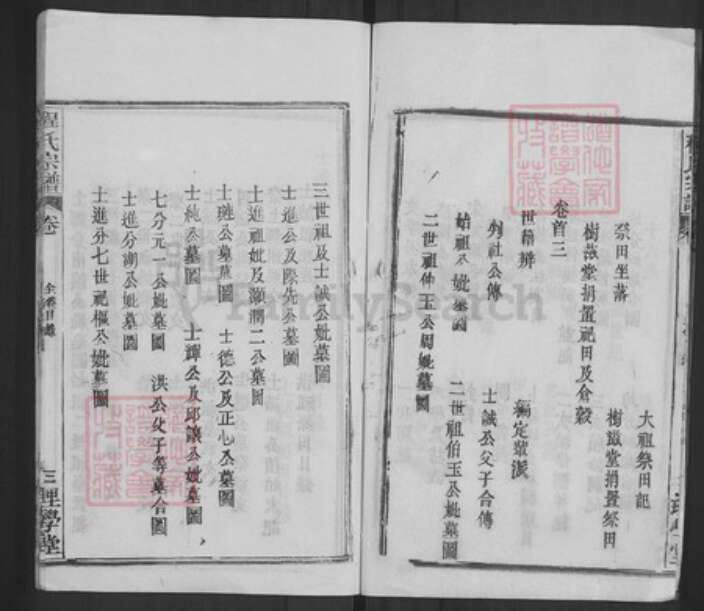 祭田坐落
大祖祭田記
樹滋堂捐置祀田及倉穀
樹滋堂捐置祭田
卷首三
世籍辨
編定輩派
列社公傳
士誠公父子合傳
始祖公妣墓圖
二世祖伯玉公妣墓圖
二世祖仲玉公周妣墓圖
程氏宗譜
卷一
全卷目錄
三俚學堂
三世祖及士誠公妣墓圖
士進公及陳先公墓圖
士進祖妣及灝潤二公墓圖
士璉公墓圖
士德公及正心公墓圖
士純公墓圖
士譚公及邱讓公妣墓圖
七分元一公妣墓圖
洪公父子等墓合圖
士進分湖公妣墓圖
士進分七世祀樞公妣墓圖
FamilySearch